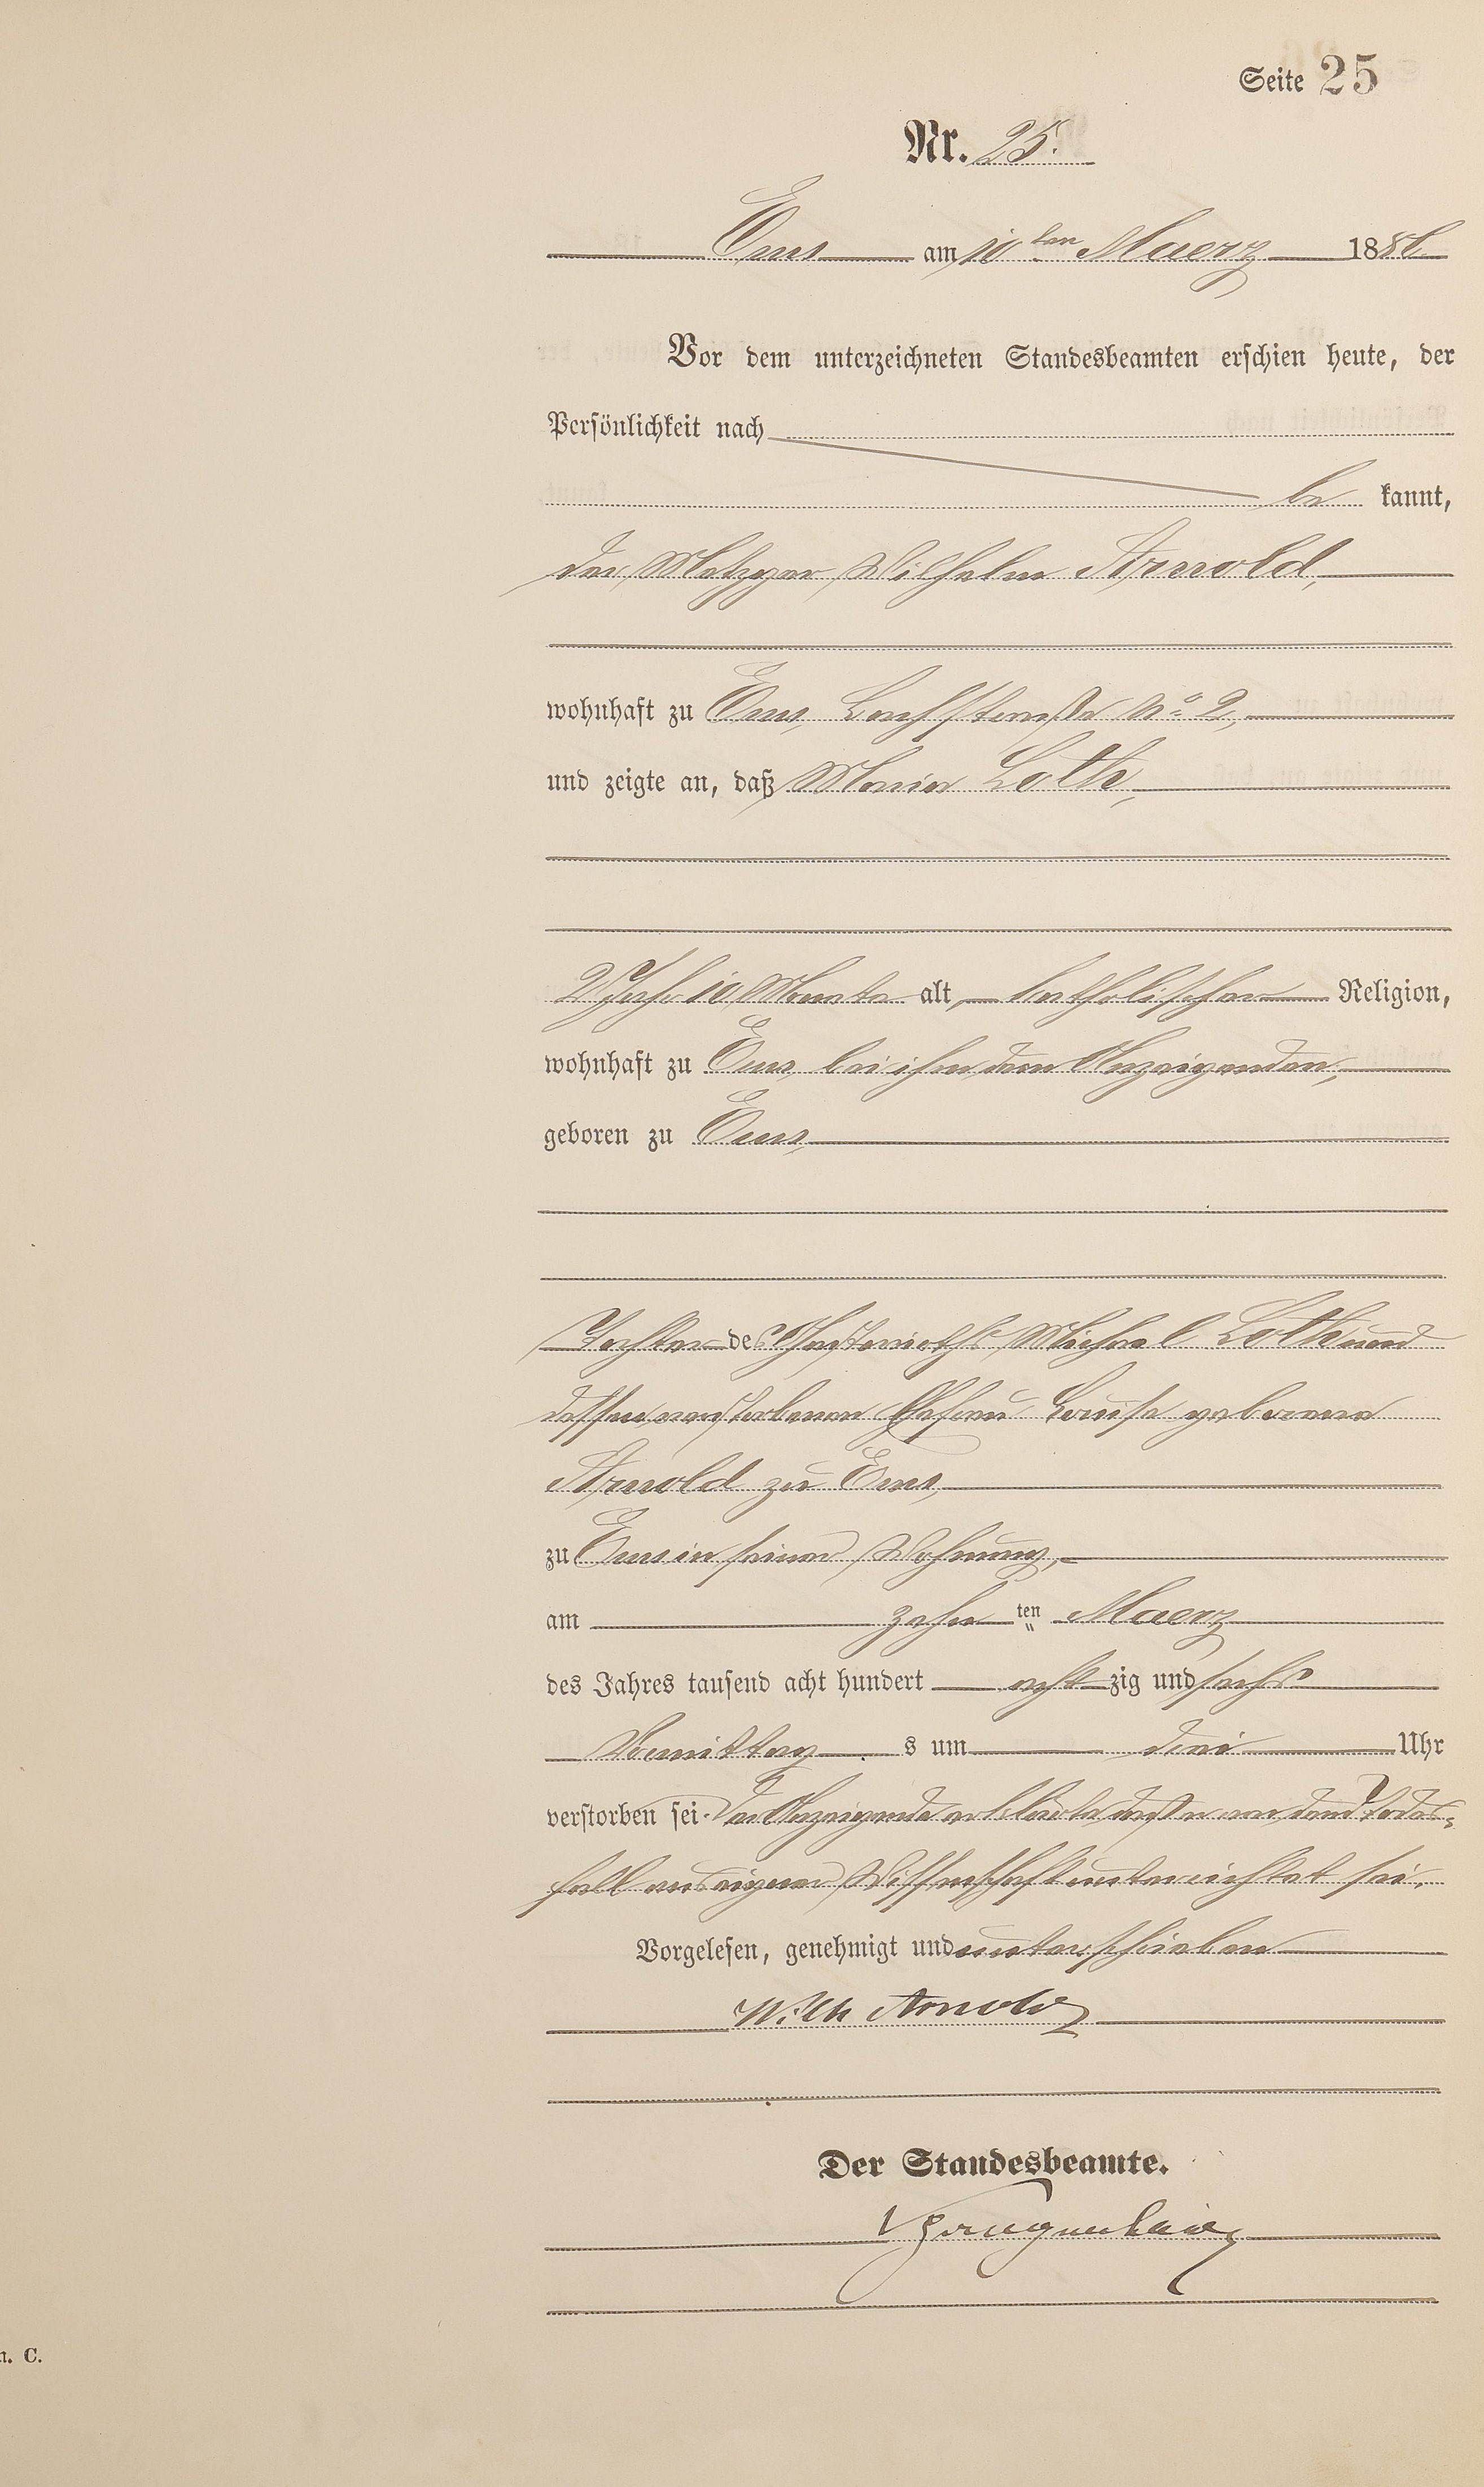 Seite 25
Nr. 25.
Ems am 10ten Maerz 1886
Vor dem unterzeichneten Standesbeamten erschien heute, der
Persönlichkeit nach
be kannt,
der Metzger Wilhelm Arnold,
wohnhaft zu Ems, No 2,
und zeigte an, daß Maria Loth,
2 Jahr 10 Monate alt, katholischer Religion,
wohnhaft zu Ems, bei ihm dem Anzeigenden,
geboren zu Ems,
Tochter des Gastwirths Michael Loth und
dessen verstorbenen Ehefrau Louise geborene
Arnold zu Ems,
zu Ems in seiner Wohnung,
am zehn ten Maerz
des Jahres tausend acht hundert acht zig und sechs
Vormittag s um drei Uhr
verstorben sei. Der Anzeigende erklärte daß er von dem Todes=
fall aus eigener Wissenschaft unterrichtet sei.
Vorgelesen, genehmigt und unterschrieben
Wilh Arnold
Der Standesbeamte.
n. C.